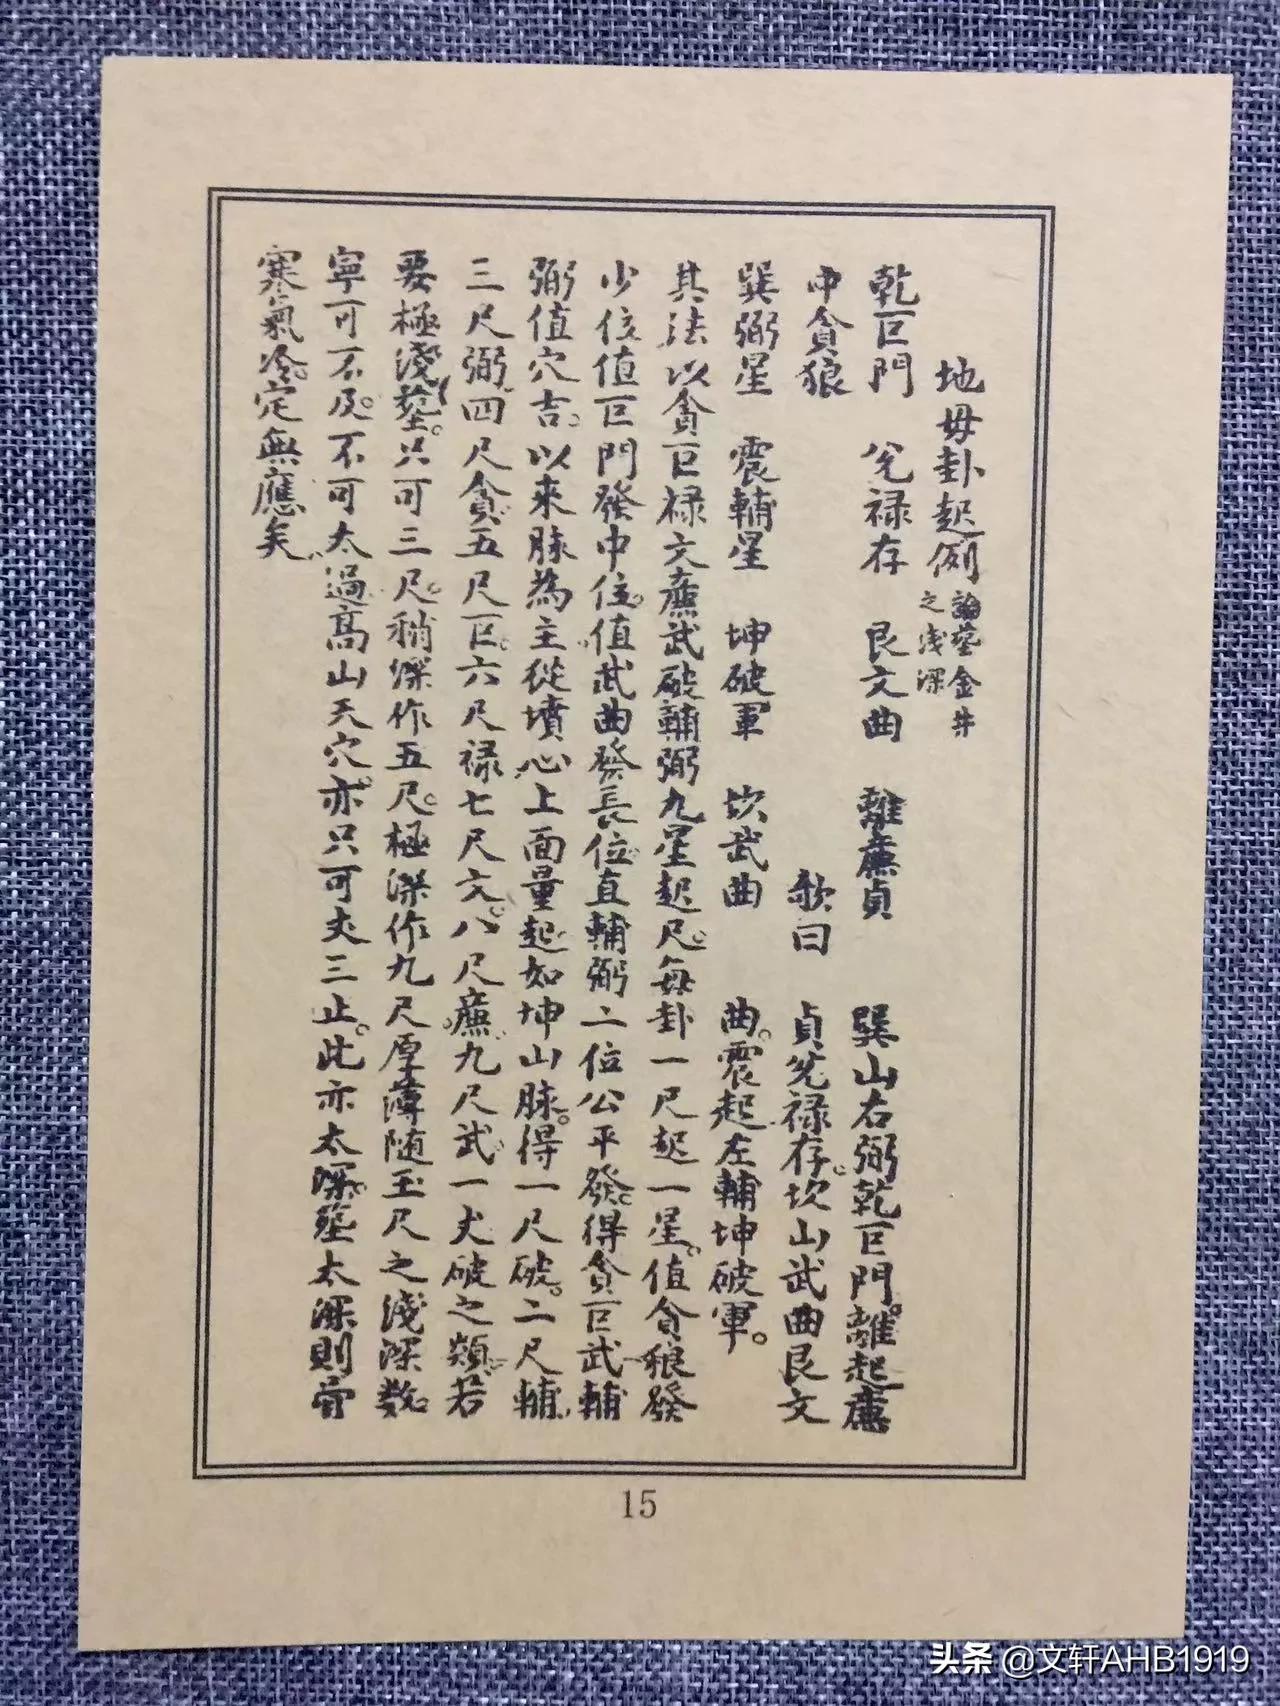 地毋卦起例 論塟金井之淺深
乾巨門 兌禄存 艮文曲 離廉貞 巽山右弼乾巨門。離起廉
中貪狼 歌曰 貞兌禄存。坎山武曲艮文
巽弼星 震輔星 坤破軍 坎武曲 曲。震起左輔坤破軍。
其法以貪巨禄文廉武破輔弼九星起尺。每卦一尺起一星。值貪狼發
少位值巨門發中位。值武曲發長位直輔弼二位公平發。得貪巨武輔
弼值穴吉。以來脉為主從墳心上面量起如坤山脉。得一尺破。二尺輔
三尺弼。四尺貪。五尺巨。六尺禄七尺文。八尺廉。九尺武一丈破之類。若
要極淺塟。只可三尺。稍深作五尺。極深作九尺厚薄随玉尺之淺深数
寧可不及。不可太過高山天穴。亦只可丈三止。此亦太深。塟太深則骨
寒氣冷。定無應矣
15
头条 @文轩AHB1919